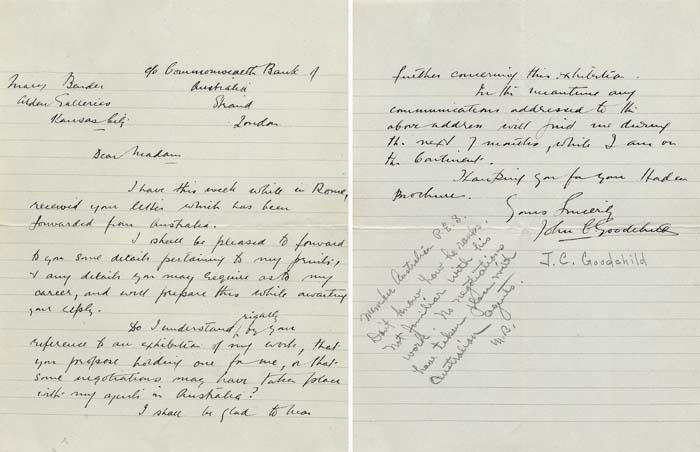 c/o Commonwealth Bank of
Australia
Strand
London
Mary Bender
Alden Galleries
Kansas City
Dear Madam
I have this week while in Rome,
received your letter which has been
forwarded from Australia.
I shall be pleased to forward
to you some details pertaining to my prints,
& any details you may require as to my
career, and will prepare this while awaiting
your reply.
Do I understand rightly by your
reference to an exhibition of my work, that
you propose holding one for me, or that
some negotiations may have taken place
with my agents in Australia?
I shall be glad to hear
further concerning this exhibition.
In the meantime any
communications addressed to the
above address will find me during
the next 7 months, while I am on
the Continent.
Thanking you for your Haden
Brochure.
Yours Sincerely
John C Goodchild
J. C. Goodchild
Member Australian P.E.S.
Don't know how he ranks.
Not familiar with his
work. No negotiations
have taken place with
Australian agents.
M.B.